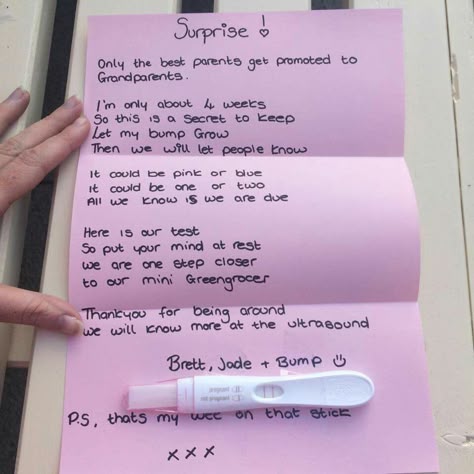 Surprise!
Only the best parents get promoted to
Grandparents.
I'm only about 4 weeks
So this is a secret to keep
Let my bump Grow
Then we will let people know
It could be pink or blue
It could be one or two
All we know is we are due
Here is our test
So put your mind at rest
we are one step closer
to our mini Greengrocer
Thankyou for being around
we will know more at the ultrasound
Brett, Jade + Bump
pregnant
not pregnant
P.S, thats my wee on that stick
x x x